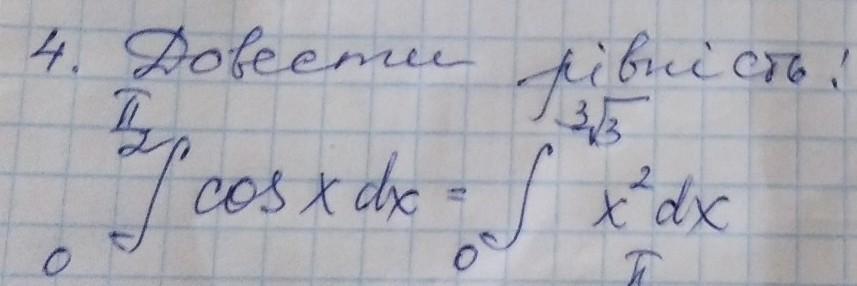 4. Довести рівність:
π/2 ∫ 0 cos x dx = ∫ 0 ∛3 x² dx
π